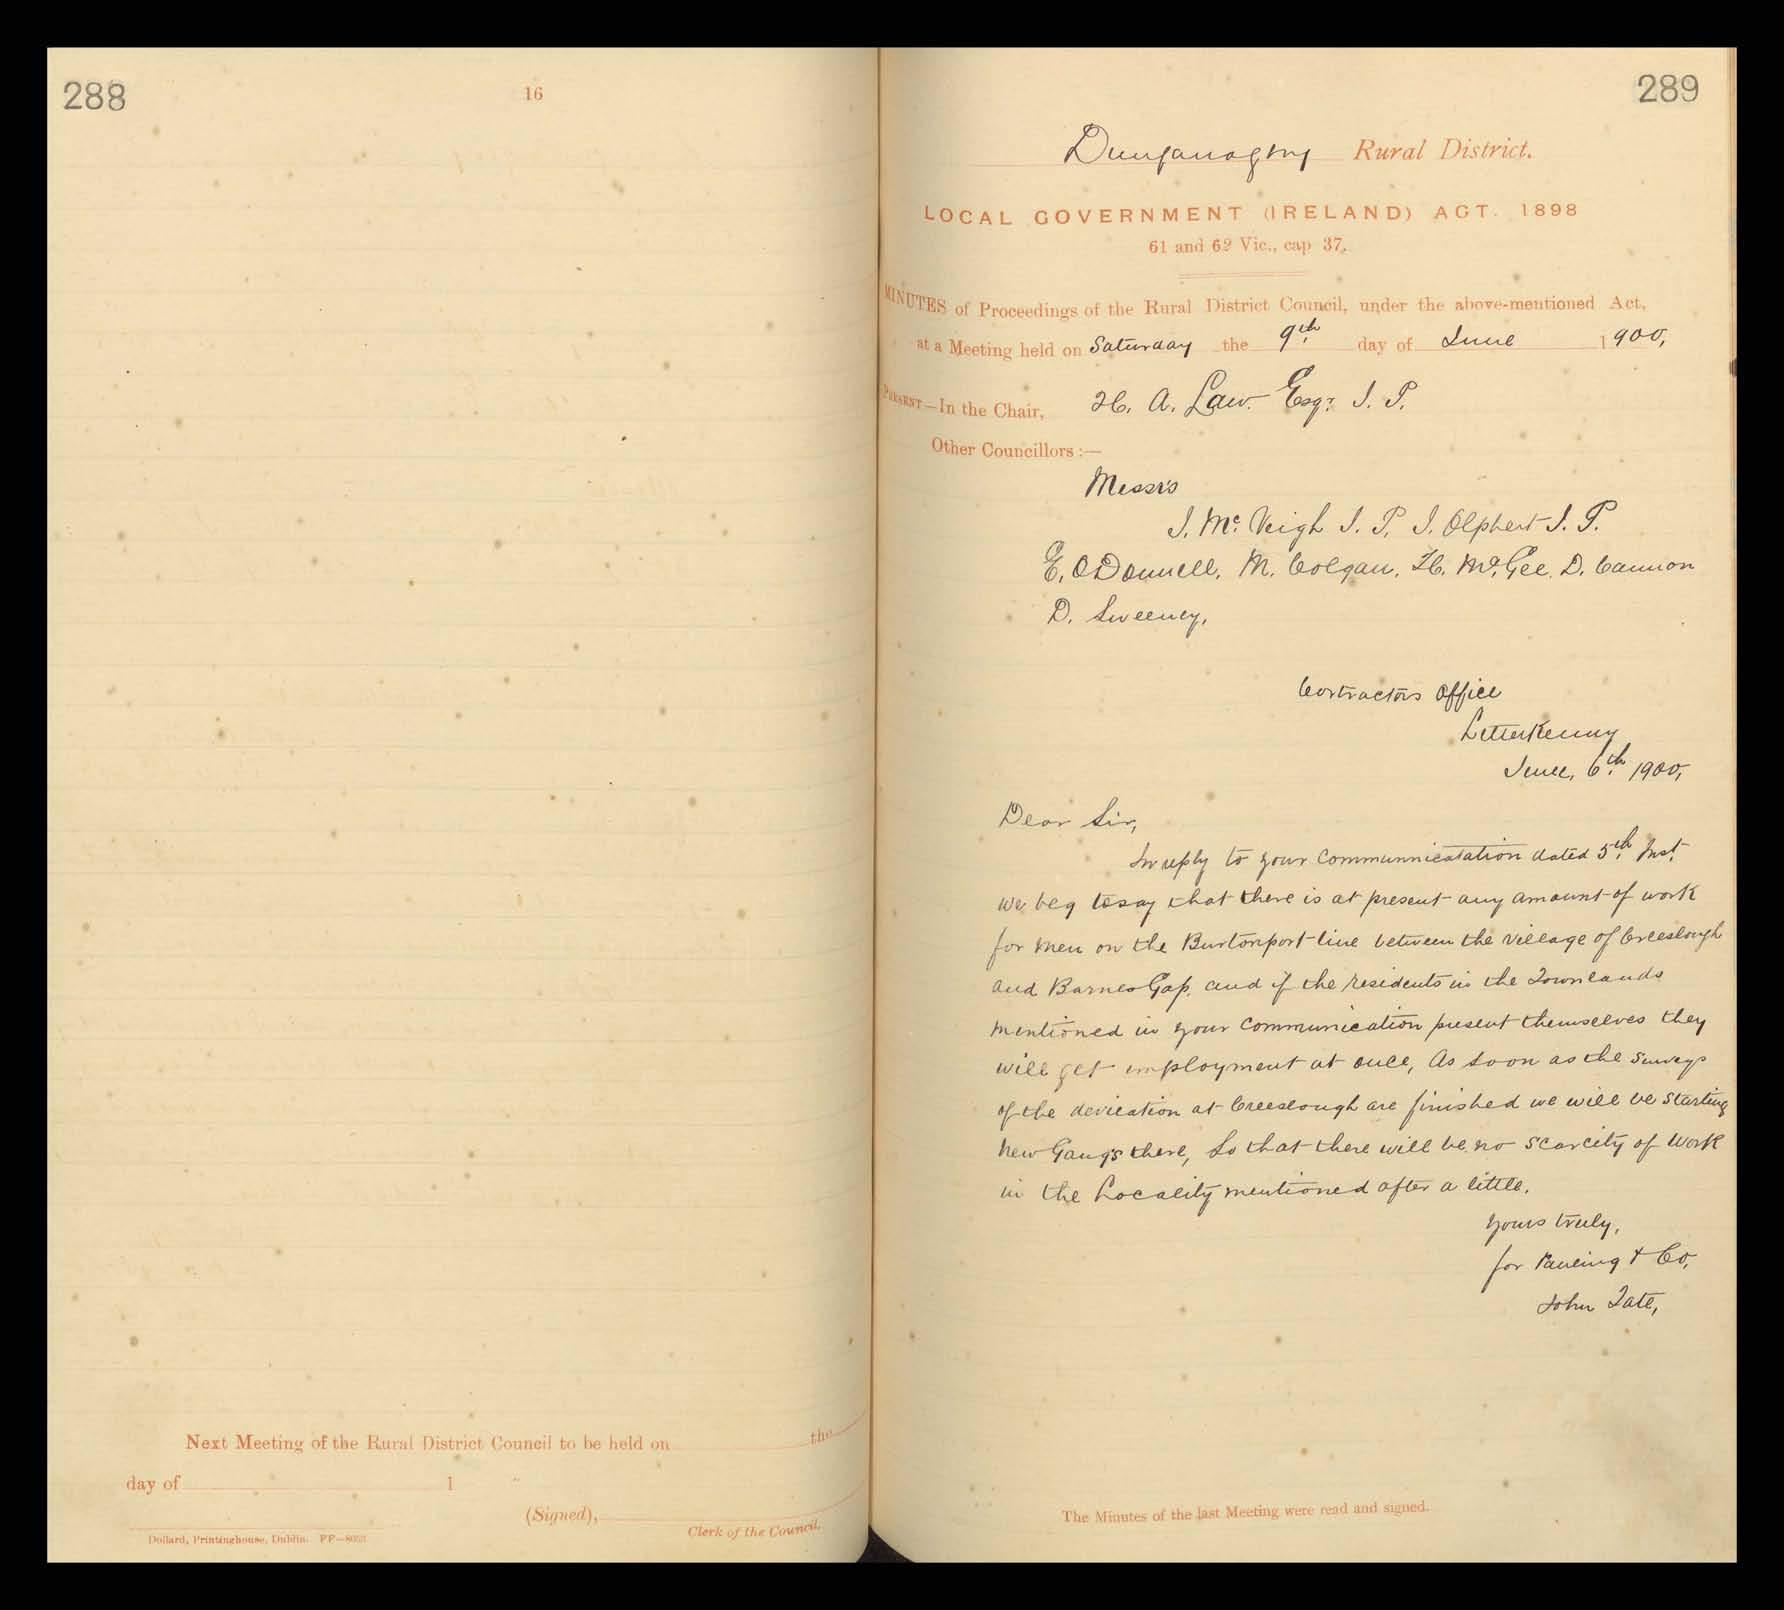 288
16
Next Meeting of the Rural District Council to be held on the
day of 1
(Signed),
Clerk of the Council.
Dollard, Printinghouse, Dublin.
289
Dunfanaghy Rural District.
LOCAL GOVERNMENT (IRELAND) ACT. 1898
61 and 62 Vic., cap 37.
MINUTES of Proceedings of the Rural District Council, under the above-mentioned Act,
at a Meeting held on Saturday the 9th. day of June 1900,
PRESENT—In the Chair, H. A. Law. Esqr. J. P.
Other Councillors :—
Messrs
J. Mc. Veigh J. P. J. Olphert J. P.
E. O'Donnell. M. Colgan. H. McGee. D. Cannon
D. Sweeney,
Contractors Office
Letterkenny
June, 6th. 1900,
Dear Sir,
In reply to your Communnicatation dated 5th. Inst.
we beg to say that there is at present any amount of work
for men on the Burtonport line between the village of Creeslough
and Barnes Gap. and if the residents in the Townlands
mentioned in your Communication present themselves they
will get employment at once, As soon as the surveys
of the deviation at Creeslough are finished we will be starting
New Gangs there, So that there will be no scarcity of Work
in the Locality mentioned after a little.
Yours truly,
for Pauling & Co,
John Tate,
The Minutes of the last Meeting were read and signed.